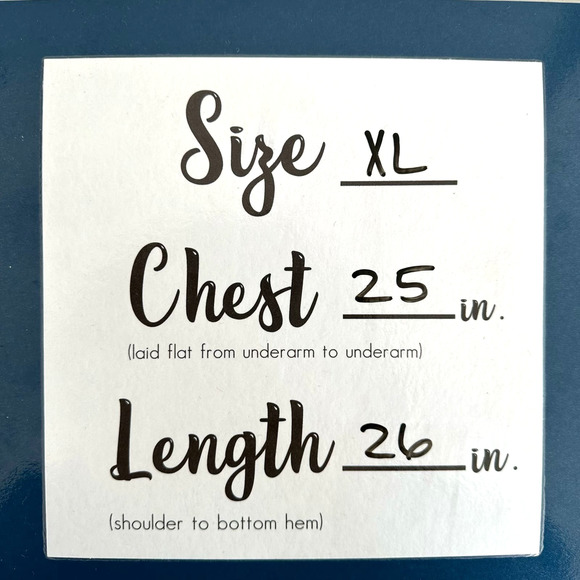 Size XL
Chest 25 in.
(laid flat from underarm to underarm)
Length 26 in.
(shoulder to bottom hem)